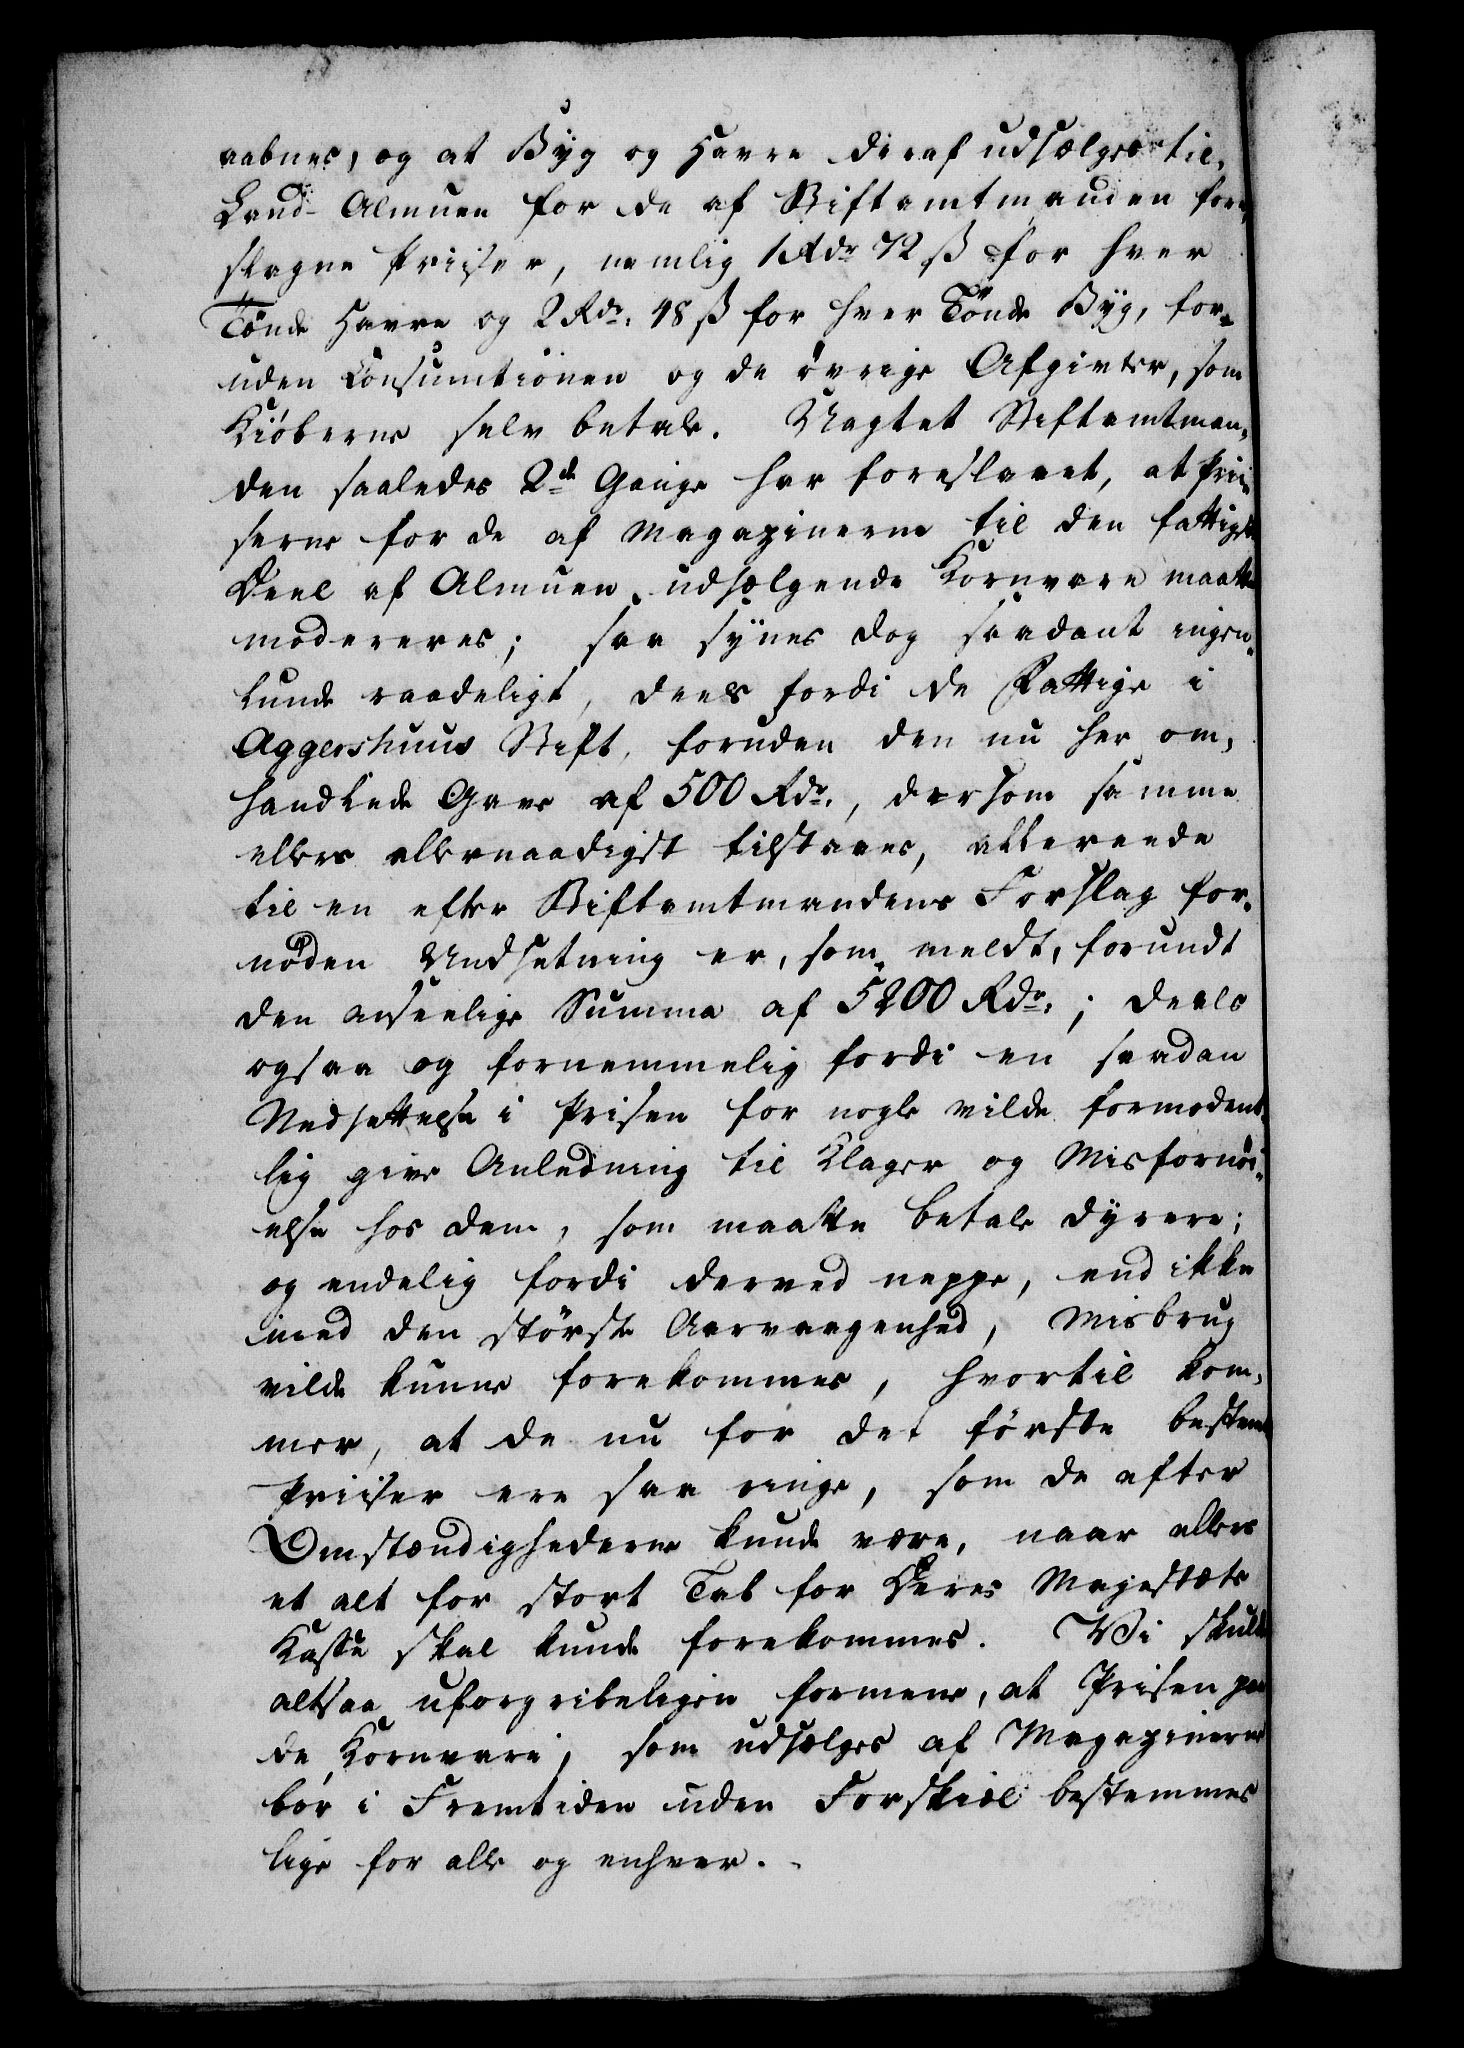 aabnes, og at Byg og Havre deraf udsælges til
Land-Almuen for de af Stiftamtmanden fore-
slagne Priiser, nemlig 1 Rdr 72 ß for hver
Tönde Havre og 2 Rdr. 48 ß for hver Tönde Byg, for-
uden Consumtionen og de övrige Afgivter, som
Kiöberne selv betale. Uagtet Stiftamtman-
den saaledes 2de Gange har foreslaaet, at Prii-
serne for de af Magazinerne til den fattigste
Deel af Almuen udsælgende Kornvare maatte
modereres; saa synes dog saadant ingen-
lunde raadeligt, deels fordi de Fattige i
Aggershuus Stift, foruden den nu her om-
handlede Gave af 500 Rdr., dersom samme
ellers allernaadigst tilstaaes, allereede
til en efter Stiftamtmandens Forslag for-
nöden Undsetning er, som meldt, forundt
den anseelige Summa af 5200 Rdr.; deels
ogsaa og fornemmelig fordi en saadan
Nedsettelse i Prisen for nogle vilde formodent-
lig give Anledning til Klager og Misfornöi-
else hos dem, som maatte betale dyrere;
og endelig fordi derved neppe, end ikke
med den störste Aarvaagenhed, Misbrug
vilde kunne forekommes, hvortil kom-
mer, at de nu for det förste bestemte
Priiser ere saa ringe, som de efter
Omstændighederne kunde være, naar ellers
et alt for stort Tab for Deres Majestæts
Kasse skal kunde forekommes. Vi skulde
altsaa uforgribeligen formene, at Prisen paa
de Kornvare, som udsælges af Magazinerne
bör i Fremtiden uden Forskiæl bestemmes
lige for alle og enhver.